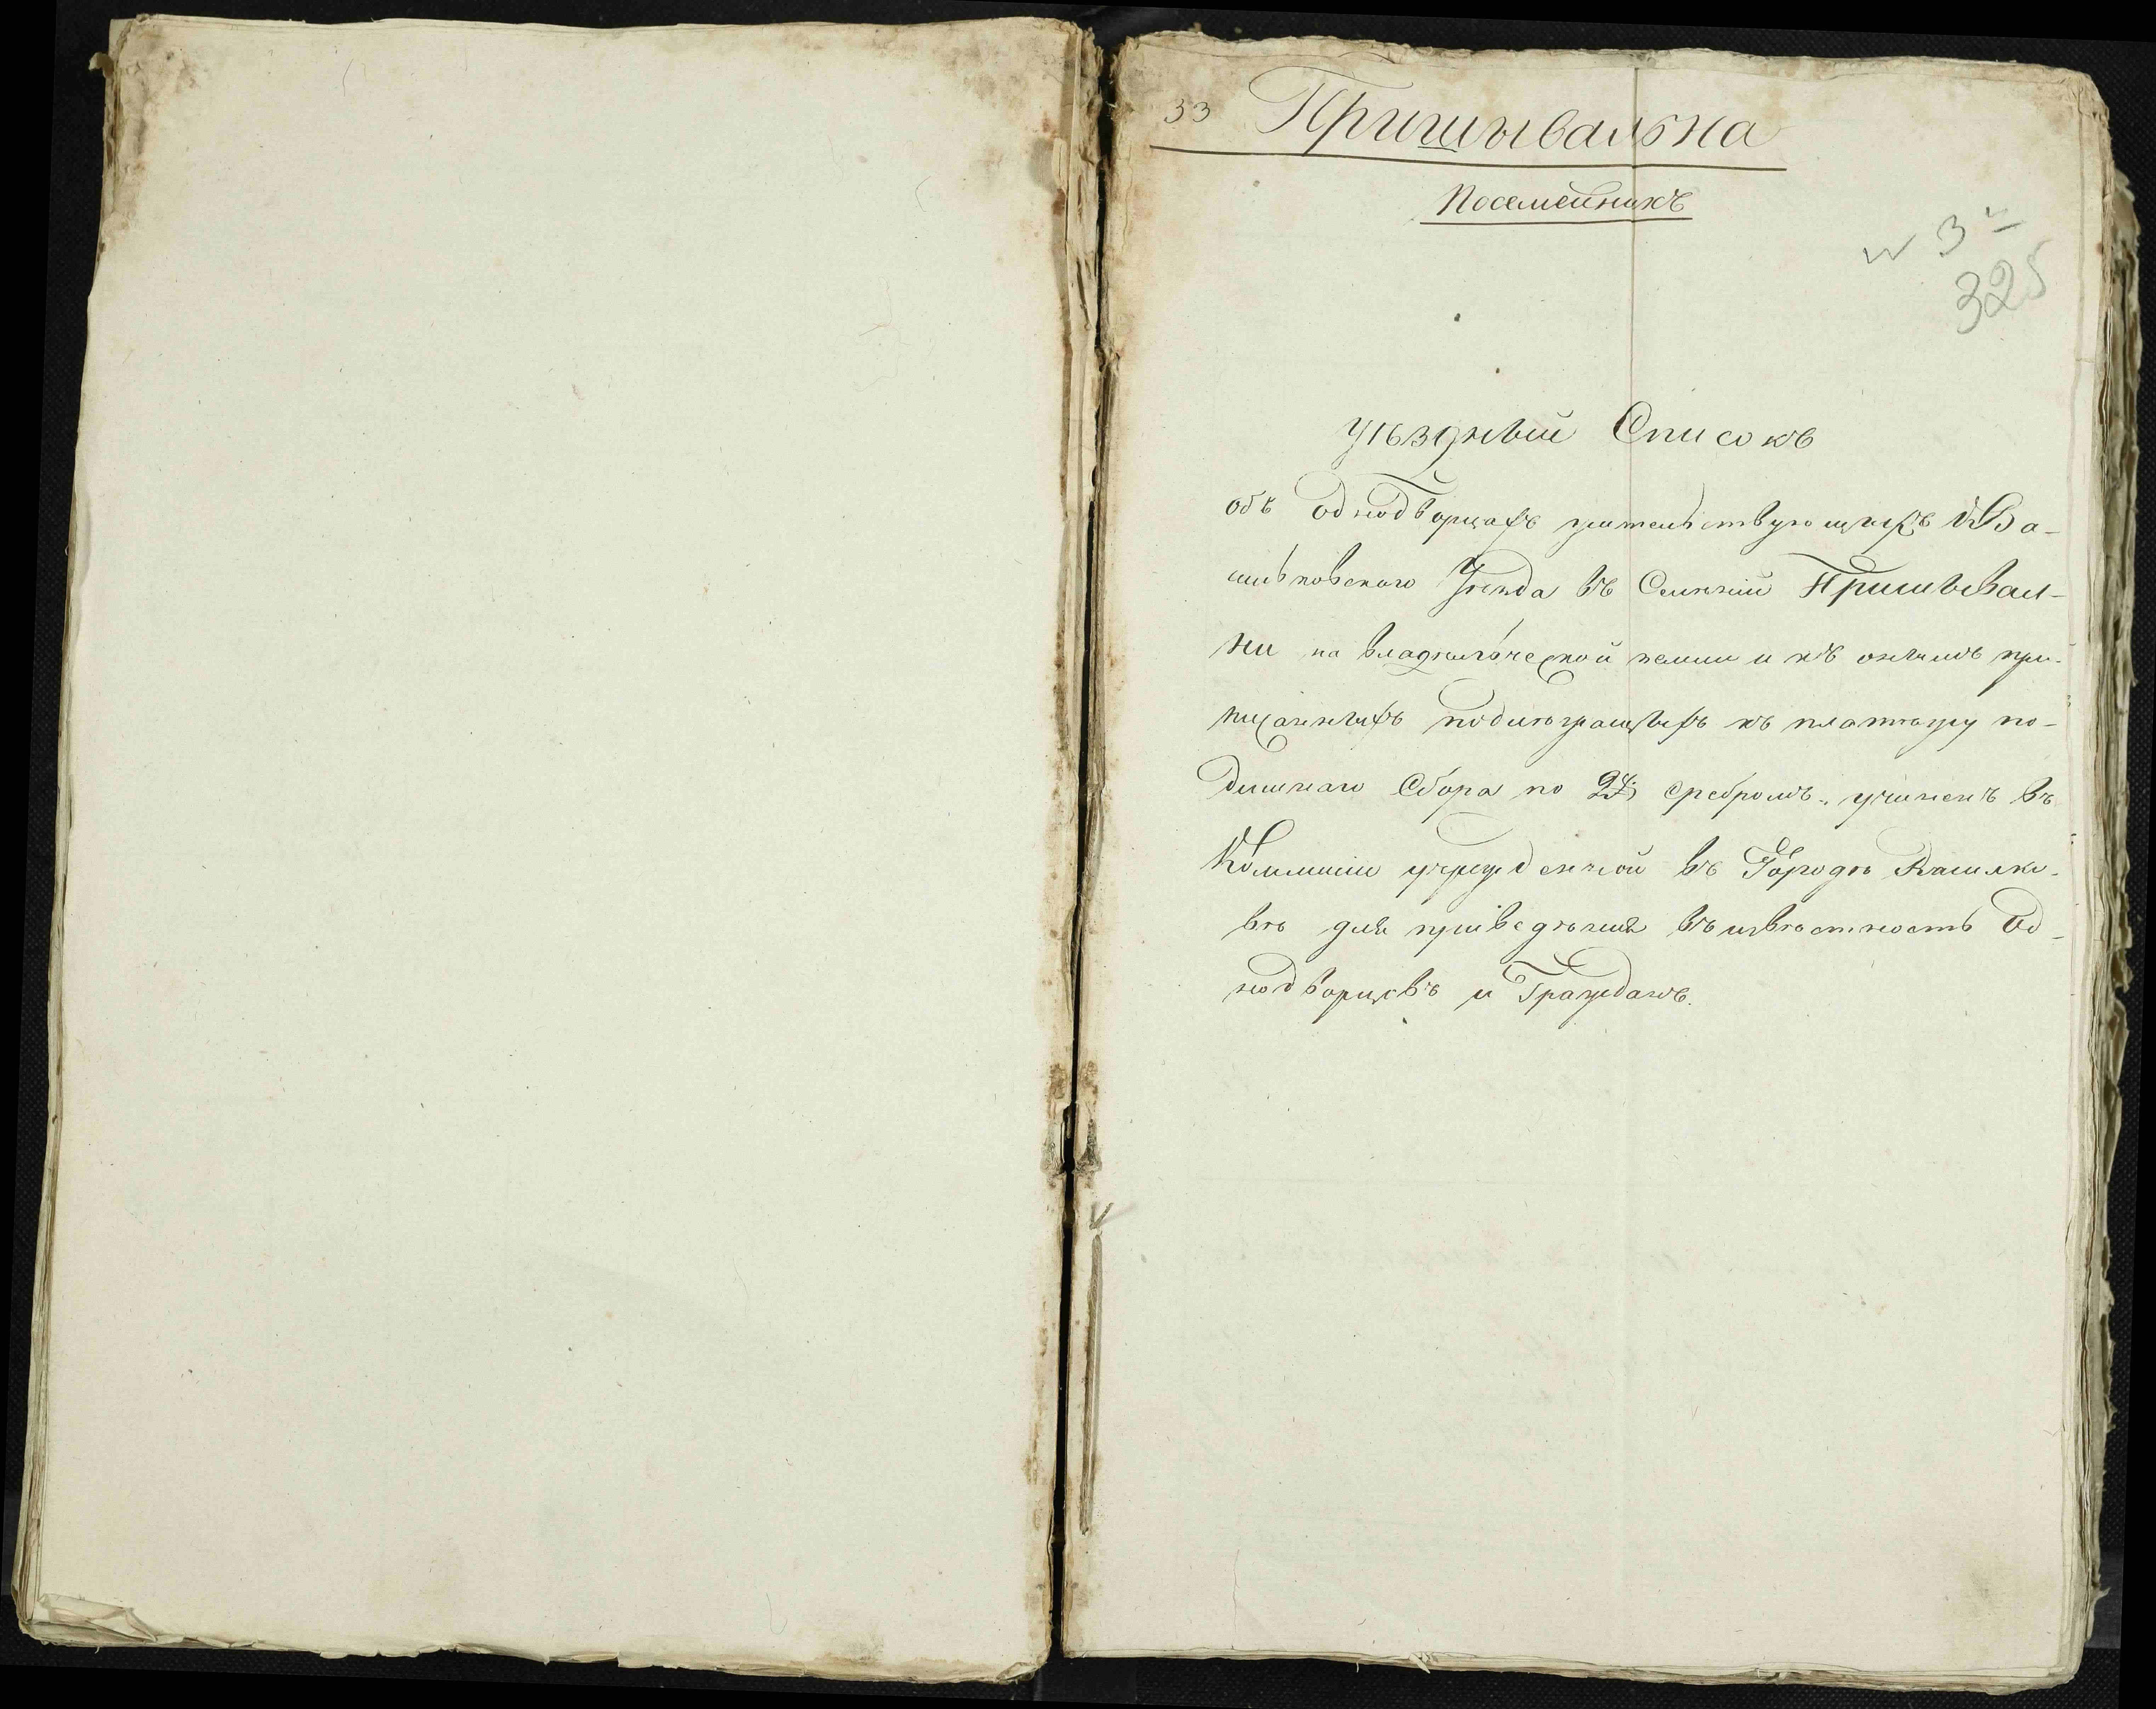 33 Пришывальна
Посемейникъ
N 3й
325
уѣздный Списокъ
объ Однодворцахъ жительствующихъ Ва-
сильковского Уезда въ Селеній Пришывал-
ни на владѣльческой земли и къ онымъ при-
писанныхъ къ платежу по-
душнаго Сбора по сребромъ, учиненъ въ
Коммисіи учрежденной въ Городѣ Василко-
вѣ для приведѣния въ извѣстность Од-
нодворцовъ и Гражданъ.